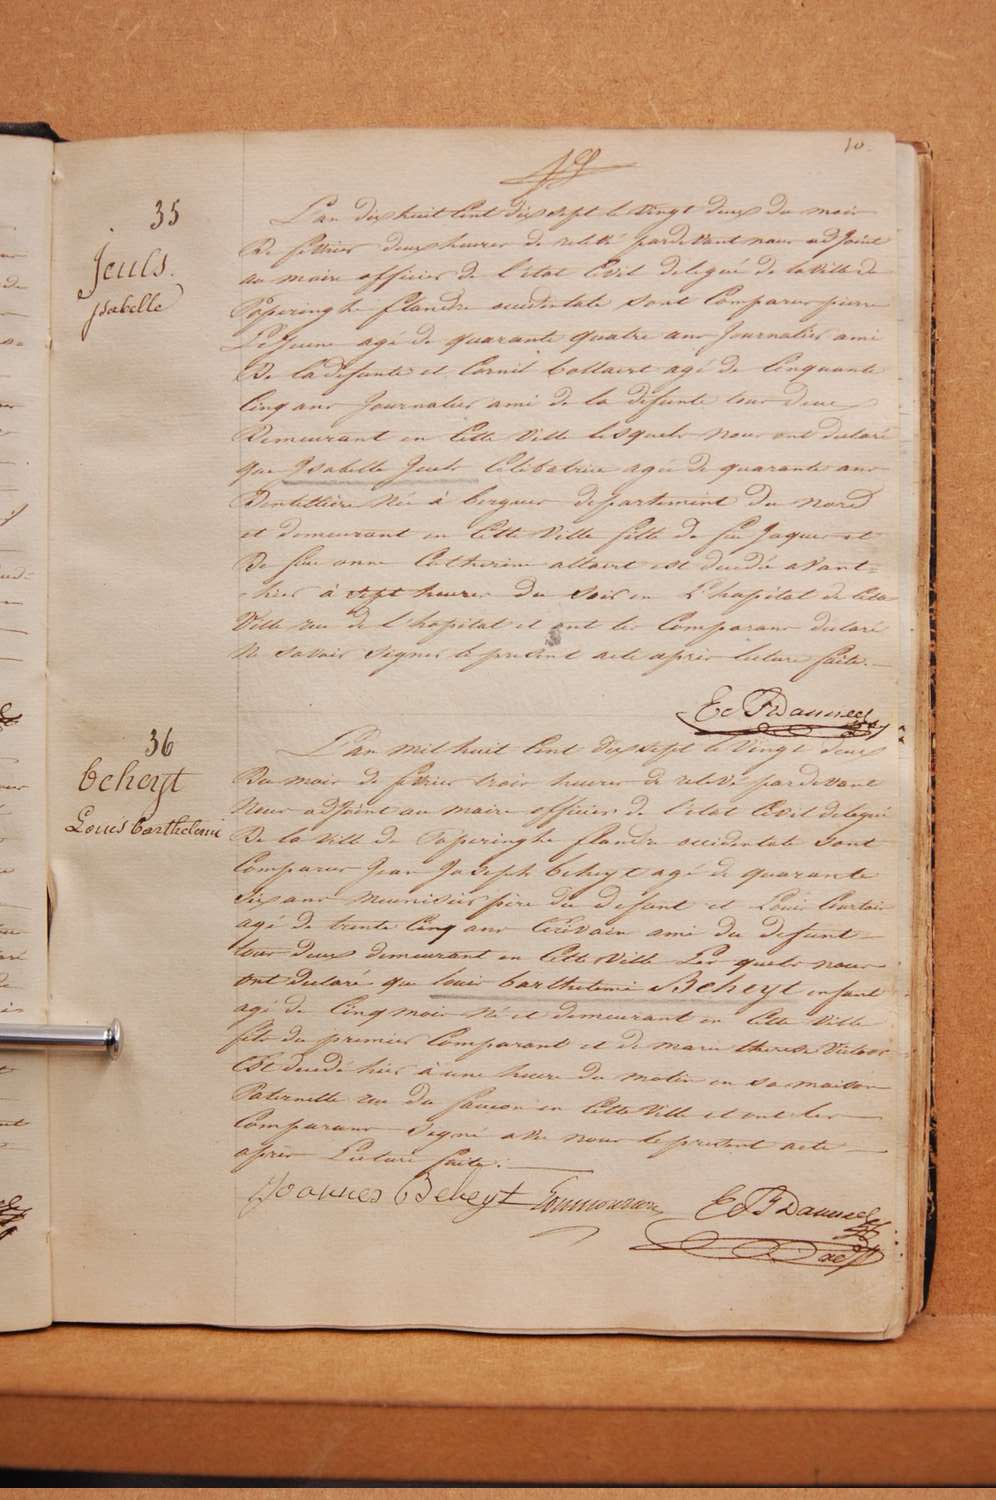 10.
35
Jeuls.
Isabelle
L'an dix huit Cent dix sept le Vingt deux du mois
De fevrier deux heures de relevé pardevant nous adjoint
au maire officier de l'état Civil delegué de la ville de
Poperinghe flandre occidentale sont Comparus pierre
LeJeune agé de quarante quatre ans Journalier ami
De la defunte et Cornil bollaert agé de Cinquante
Cinq ans Journalier ami de la defunte tous deux
Demeurant en Cette Ville lesquels nous ont declaré
que Isabelle Jeuls Celibatrice agée de quarante ans
Dentelliere Née à bergues departement du Nord
et demeurant en Cette Ville fille de feu Jaques et
De feue anne Catherine allaert est decedée avant=
=hier à sept heures du soir en L'hopital de Cette
Ville rue de l'hopital et ont les Comparans declaré
Ne savoir signer le present acte après lecture faite.
36
beheyt
Louis barthelemi
L'an mil huit Cent dix sept le Vingt deux
Du mois de fevrier trois heures de relevé pardevant
Nous adjoint au maire officier de l'état Civil delegué
De la Ville de Poperinghe flandre occidentale sont
Comparus Jean Joseph beheyt agé de quarante
six ans meunisier père du defunt et Louis Courtois
agé de trente Cinq ans Ecrivain ami du defunt
tous deux demeurant en Cette Ville Les quels nous
ont declaré que Louis barthelemi Beheyt enfant
agé de Cinq mois Né et demeurant en Cette Ville
fils du premier Comparant et de marie therese Victoor
Est decedé hier à une heure du matin en sa maison
Paternelle rue du faucon en Cette Ville et ont les
Comparans signé avec nous le present acte
après Lecture faite.
Joannes Beheyt